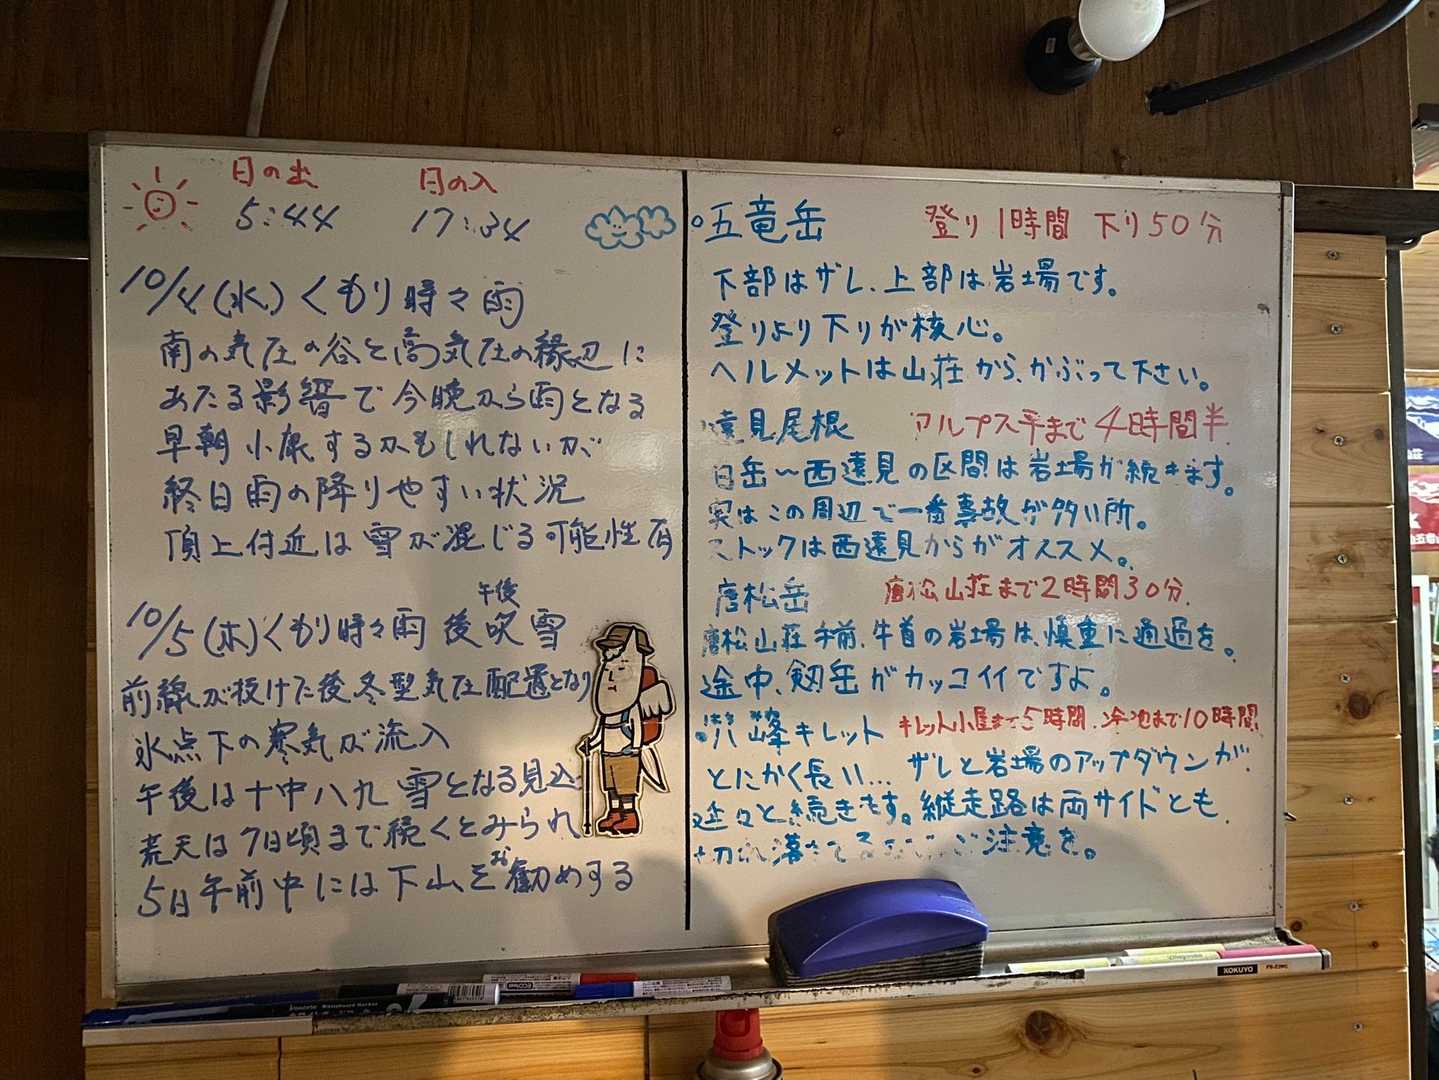 日の出 日の入
5:44 17:34
10/4(水)くもり時々雨
南の気圧の谷と高気圧の縁辺に
あたる影響で今晩から雨となる
早朝小康するかもしれないが
終日雨の降りやすい状況
頂上付近は雪が混じる可能性有
午後
10/5(木)くもり時々雨後吹雪
前線が抜けた後冬型気圧配置となり
氷点下の寒気が流入
午後は十中八九雪となる見込
荒天は7日頃まで続くとみられ
5日午前中には下山をお勧めする
・五竜岳 登り1時間 下り50分
下部はザレ、上部は岩場です。
登りより下りが核心。
ヘルメットは山荘から、かぶって下さい。
遠見尾根 アルプス平まで4時間半
白岳〜西遠見の区間は岩場が続きます。
実はこの周辺で一番事故が多い所。
ストックは西遠見からがオススメ。
唐松岳 唐松山荘まで2時間30分.
唐松山荘手前、牛首の岩場は、慎重に通過を。
途中、剱岳がカッコイイですよ。
・八峰キレット キレット小屋まで5時間、冷池まで10時間
とにかく長い... ザレと岩場のアップダウンが
延々と続きます。縦走路は両サイドとも
切れ落ちてる ご注意を。
KOKUYO